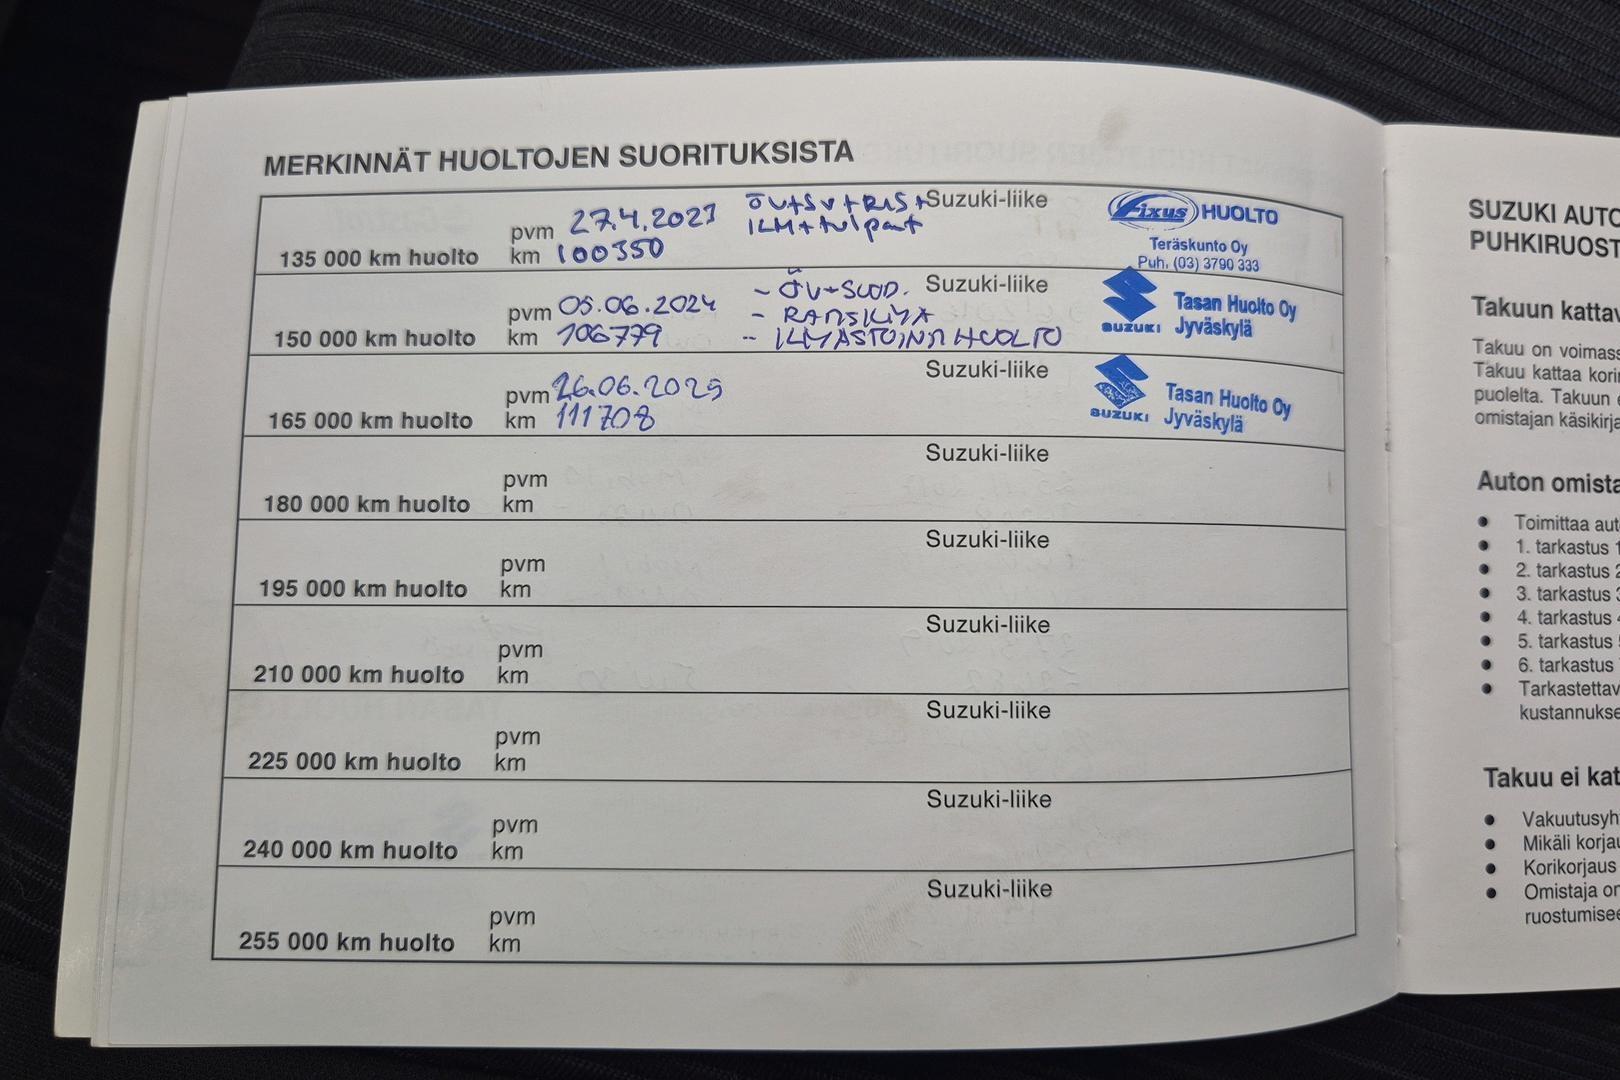 MERKINNÄT HUOLTOJEN SUORITUKSISTA
135 000 km huolto
pvm 27.4.2023
km 100350
ÖV+SV+RAS+
ILM+tulpat
Suzuki-liike
Fixus HUOLTO
Teräskunto Oy
Puh. (03) 3790 333
150 000 km huolto
pvm 05.06.2024
km 106779
- ÖV+SUOD.
-
- ILMASTOINTIHUOLTO
Suzuki-liike
SUZUKI
Tasan Huolto Oy
Jyväskylä
165 000 km huolto
pvm 26.06.2025
km 111708
Suzuki-liike
SUZUKI
Tasan Huolto Oy
Jyväskylä
180 000 km huolto
pvm
km
Suzuki-liike
195 000 km huolto
pvm
km
Suzuki-liike
210 000 km huolto
pvm
km
Suzuki-liike
225 000 km huolto
pvm
km
Suzuki-liike
240 000 km huolto
pvm
km
Suzuki-liike
255 000 km huolto
pvm
km
Suzuki-liike
SUZUKI AUTO
PUHKIRUOST
Takuun kattav
Takuu on voimass
Takuu kattaa kori
puolelta. Takuun
omistajan käsikirja
Auton omista
● Toimittaa aut
● 1. tarkastus 1
● 2. tarkastus 2
● 3. tarkastus 3
● 4. tarkastus 4
● 5. tarkastus
● 6. tarkastus
● Tarkastettav
kustannukse
Takuu ei kat
● Vakuutusyh
● Mikäli korjau
● Korikorjaus
● Omistaja on
ruostumise